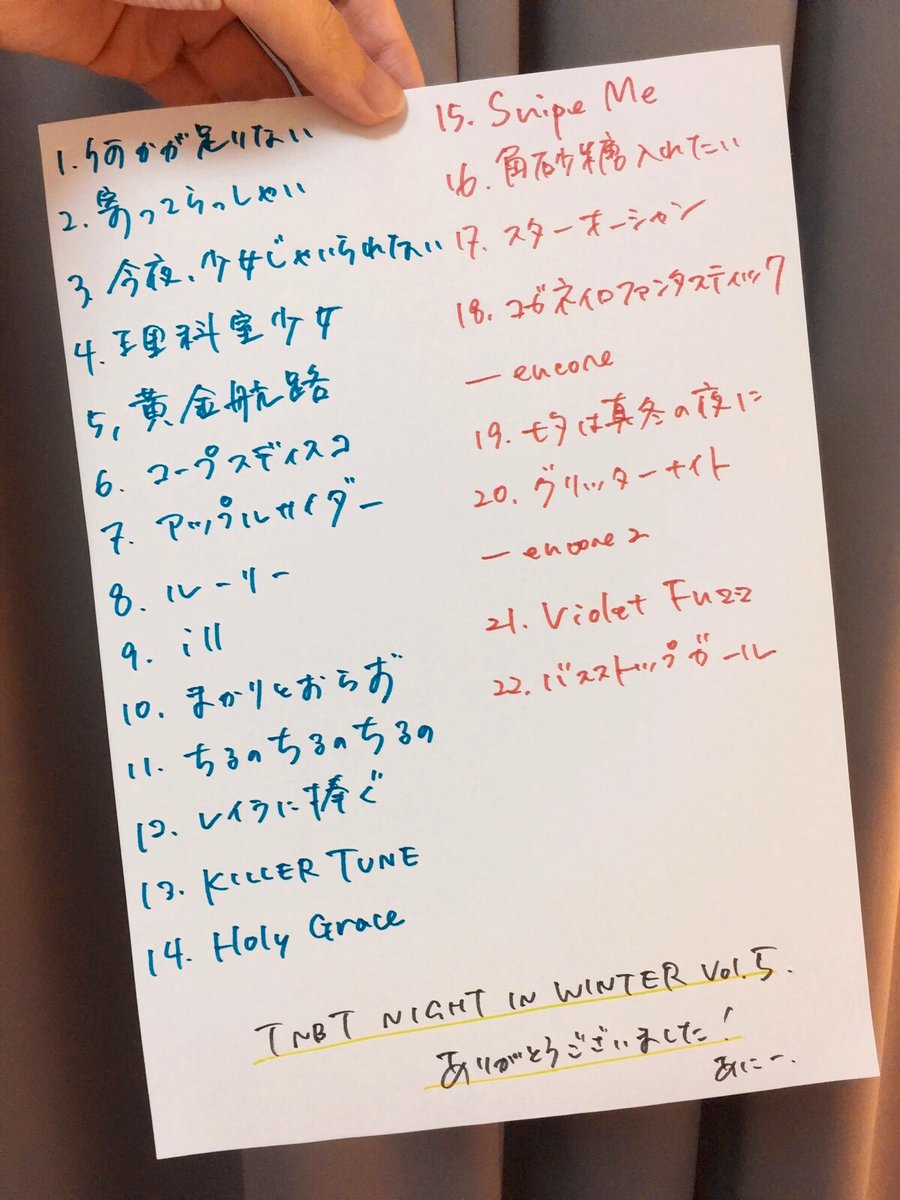 1. 何かが足りない
2. 寄ってらっしゃい
3. 今夜、少女じゃいられない
4. 理科室少女
5, 黄金航路
6. コープスディスコ
7. アップルサイダー
8. ルーリー
9. ill
10. まかりとおらお
11. ちるのちるのちるの
12. レイラに捧ぐ
13. KILLER TUNE
14. Holy Grace
15. Snipe Me
16. 角砂糖入れたい
17. スターオーシャン
18. コガネイロファンタスティック
— encore
19. モタは真冬の夜に
20. グリッターナイト
— encore 2
21. Violet Fuzz
22. バスストップガール
TNBT NIGHT IN WINTER Vol.5.
ありがとうございました!
あにー.